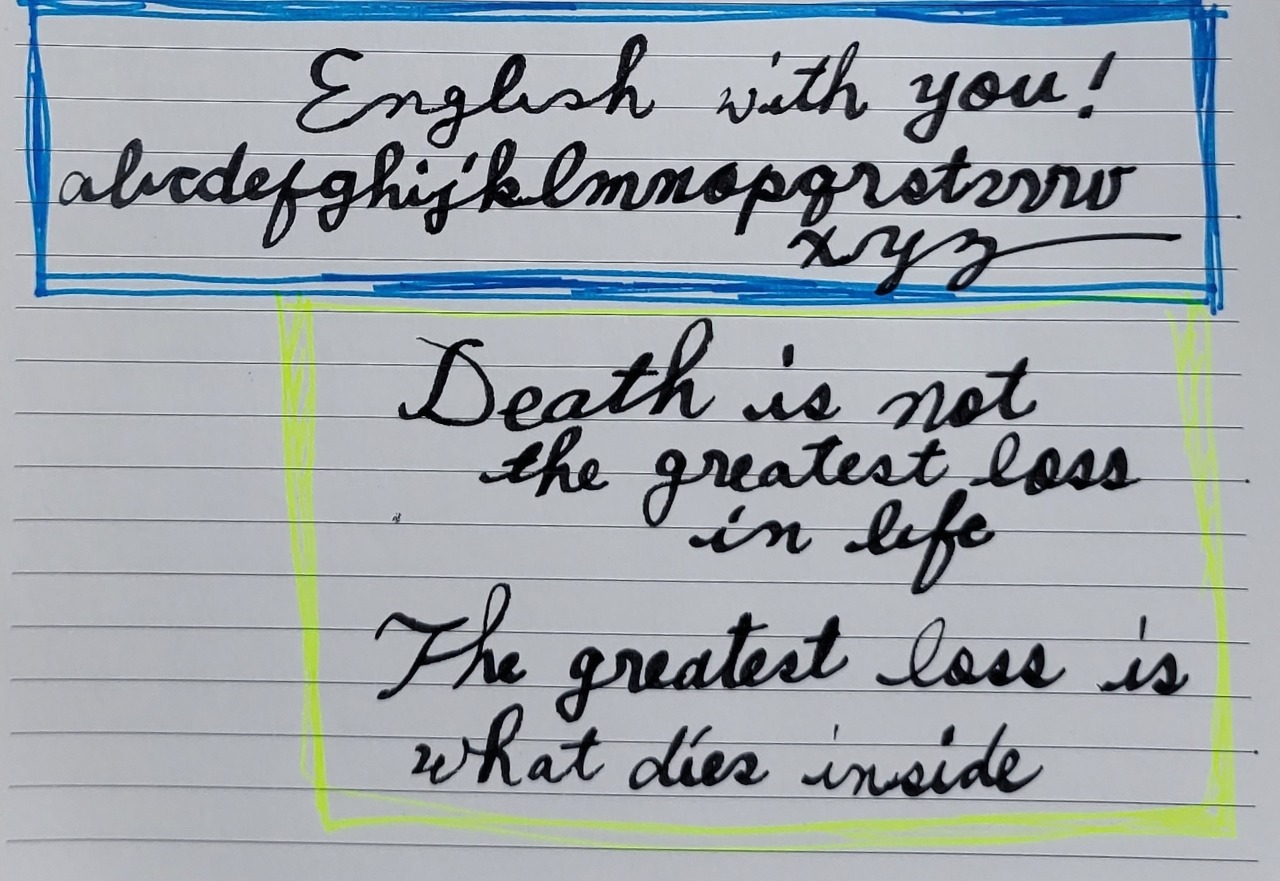 English with you!
abcdefghijklmnopqrstuvw
xyz
Death is not
the greatest loss
in life
The greatest loss is
what dies inside